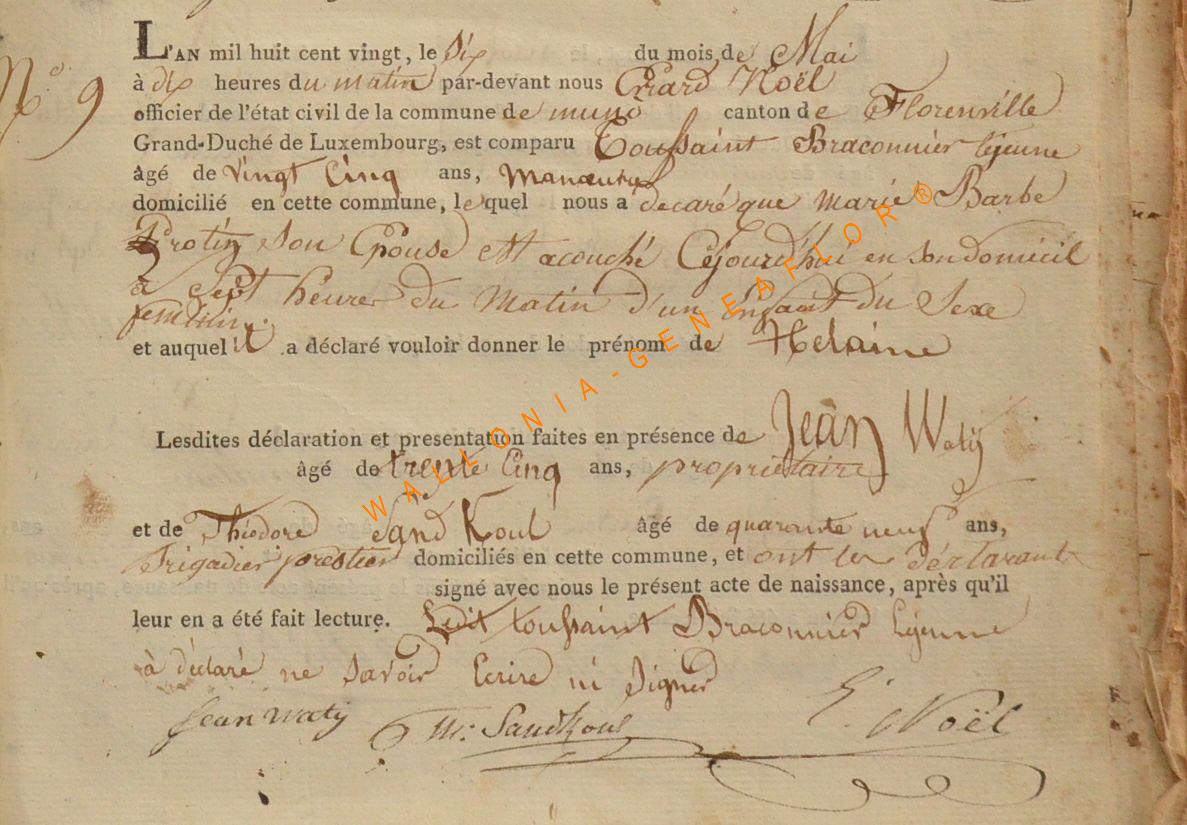 L'AN mil huit cent vingt, le dix du mois, de Mai
N.º 9
à dix heures du matin par-devant nous Erard Noël
officier de l'état civil de la commune de muno canton de Florenville
Grand-Duché de Luxembourg, est comparu Toussaint Braconnier lejeune
âgé de vingt Cinq ans, Manœuvre
domicilié en cette commune, lequel nous a decaré que Marie Barbe
Protin son Epouse est acouché Cejourd'hui en son domicil
a sept heures du Matin d'un Enfant du Sexe
feminin.
et auquel il a déclaré vouloir donner le prénom de Helaine
Lesdites déclaration et presentation faites en présence de Jean Waty
âgé de trente Cinq ans, propriétaire
et de Théodore Sand Koul âgé de quarante neuf ans,
Brigadier forestier domiciliés en cette commune, et ont les déclarants
signé avec nous le présent acte de naissance, après qu'il
leur en a été fait lecture. Ledit toussaint Braconnier lejeune
à déclaré ne savoir Ecrire ni signer
Jean waty Sandkoul E. Noël
WALLONIA-GENEAFLOR®